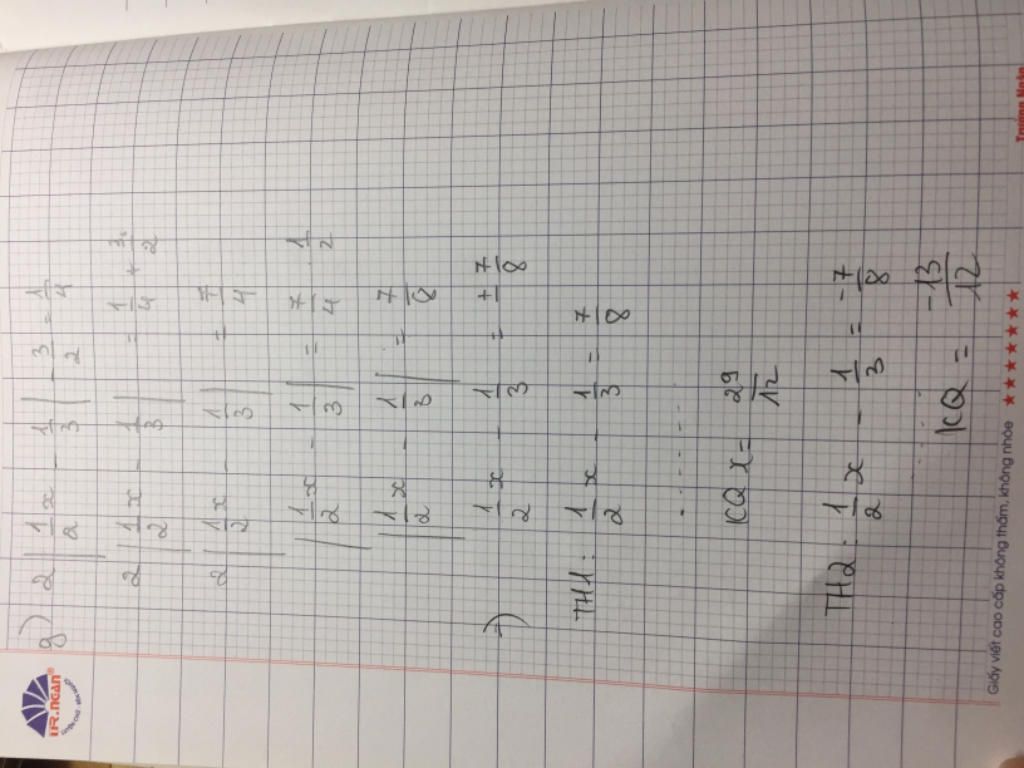 TR.NGAN®
g) 2 | 1/2 x - 1/3 | - 3/2 = 1/4
2 | 1/2 x - 1/3 | = 1/4 + 3/2
2 | 1/2 x - 1/3 | = 7/4
| 1/2 x - 1/3 | = 7/4 . 1/2
| 1/2 x - 1/3 | = 7/8
⇒) 1/2 x - 1/3 = ± 7/8
TH1: 1/2 x - 1/3 = 7/8
. . . . .
KQ x = 29/12
TH2: 1/2 x - 1/3 = -7/8
. . . . .
KQ = -13/12
Giấy viết cao cấp không thấm, không nhòe ★★★★★★★